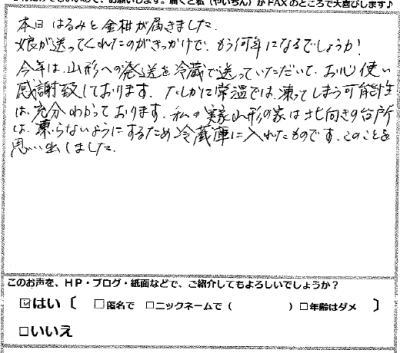 本日はるみと金柑が届きました。
娘が送ってくれたのがきっかけで、もう何年になるでしょうか!
今年は、山形への発送を冷蔵で送っていただいて、お心使い
感謝致しております。たしかに常温では、凍ってしまう可能性
は、充分わかっております。私の実家山形の家は北向きの台所
は、凍らないようにするため冷蔵庫に入れたものです。このことを
思い出しました。
このお声を、HP・ブログ・紙面などで、ご紹介してもよろしいでしょうか?
☑はい〔 □匿名で □ニックネームで( )□年齢はダメ 〕
□いいえ